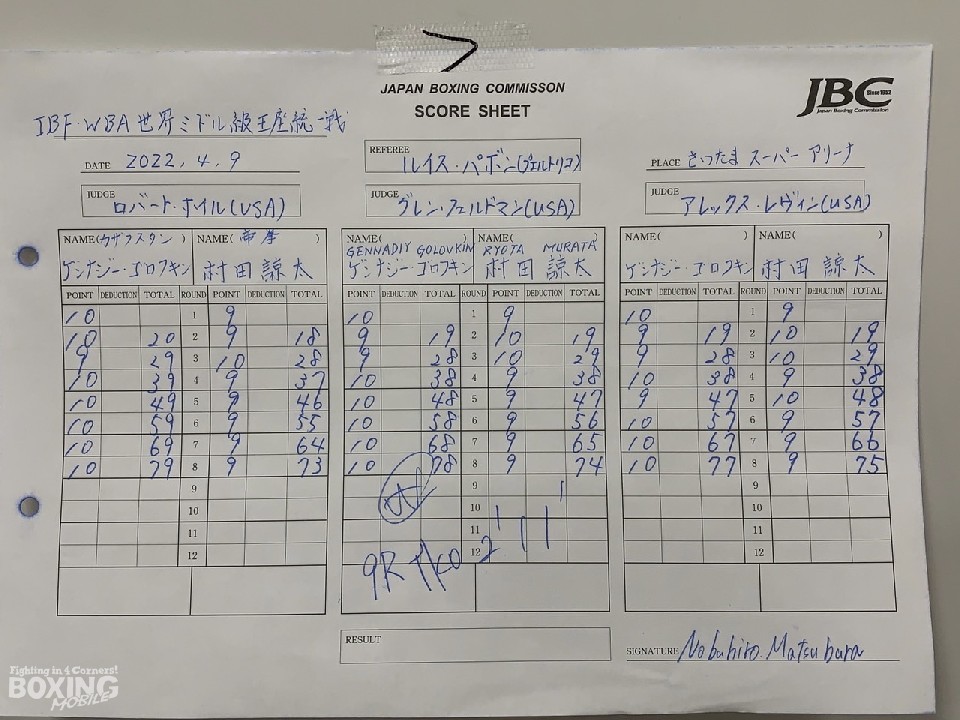 JAPAN BOXING COMMISSON
SCORE SHEET
JBC
Since 1952
Japan Boxing Commission
IBF・WBA 世界ミドル級王座統一戦
DATE 2022.4.9
REFEREE ルイス・パボン(プエルトリコ)
PLACE さいたま スーパー アリーナ
JUDGE ロバート・ホイル(USA)
JUDGE グレン・フェルドマン(USA)
JUDGE アレックス・レヴィン(USA)
NAME(カザフスタン) NAME(帝拳) NAME( GENNADIY GOLOVKIN NAME( RYOTA MURATA NAME( ) NAME( )
ゲンナジー・ゴロフキン 村田諒太 ゲンナジー・ゴロフキン 村田諒太 ゲンナジー・ゴロフキン 村田諒太
POINT DEDUCTION TOTAL ROUND POINT DEDUCTION TOTAL POINT DEDUCTION TOTAL ROUND POINT DEDUCTION TOTAL POINT DEDUCTION TOTAL ROUND POINT DEDUCTION TOTAL
10 1 9 10 1 9 10 1 9
10 20 2 9 18 9 19 2 10 19 9 19 2 10 19
9 29 3 10 28 9 28 3 10 29 9 28 3 10 29
10 39 4 9 37 10 38 4 9 38 10 38 4 9 38
10 49 5 9 46 10 48 5 9 47 9 47 5 10 48
10 59 6 9 55 10 58 6 9 56 10 57 6 9 57
10 69 7 9 64 10 68 7 9 65 10 67 7 9 66
10 79 8 9 73 10 78 8 9 74 10 77 8 9 75
9 9 9
10 10 10
11 11 11
12 12 12
9R TKO 2'11"
RESULT
SIGNATURE Nobuhiro Matsubara
Fighting in 4 Corners!
BOXING
MOBILE